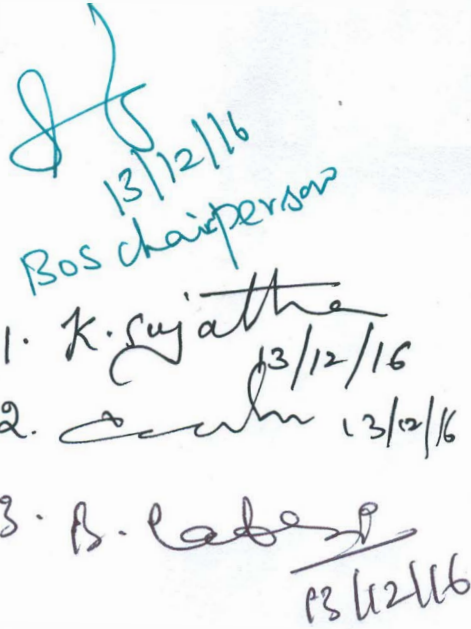 13/12/16
BOS chairperson
1. K. Sujatha
13/12/16
2. 13/12/16
3. B.
13/12/16